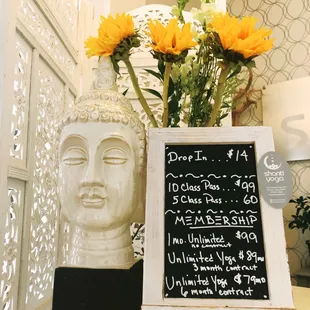 Drop In ... $14
10 Class Pass ... $99
5 Class Pass ... 60
MEMBERSHIP
1 mo. Unlimited $99
no contract
Unlimited Yoga $89mo
3 month contract
Unlimited Yoga $79mo
6 month contract
shanti
yoga
S